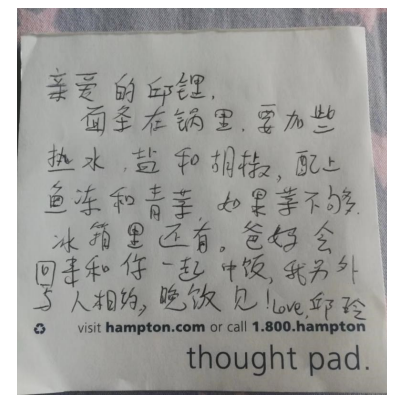 亲爱的邱锂,
面条在锅里.要加些
热水,盐和胡椒,配上
鱼冻和青菜,如果菜不够.
冰箱里还有。爸好会
回来和你一起中饭,我另外
与人相约,晚饭见!Love,邱玲
visit hampton.com or call 1.800.hampton
thought pad.